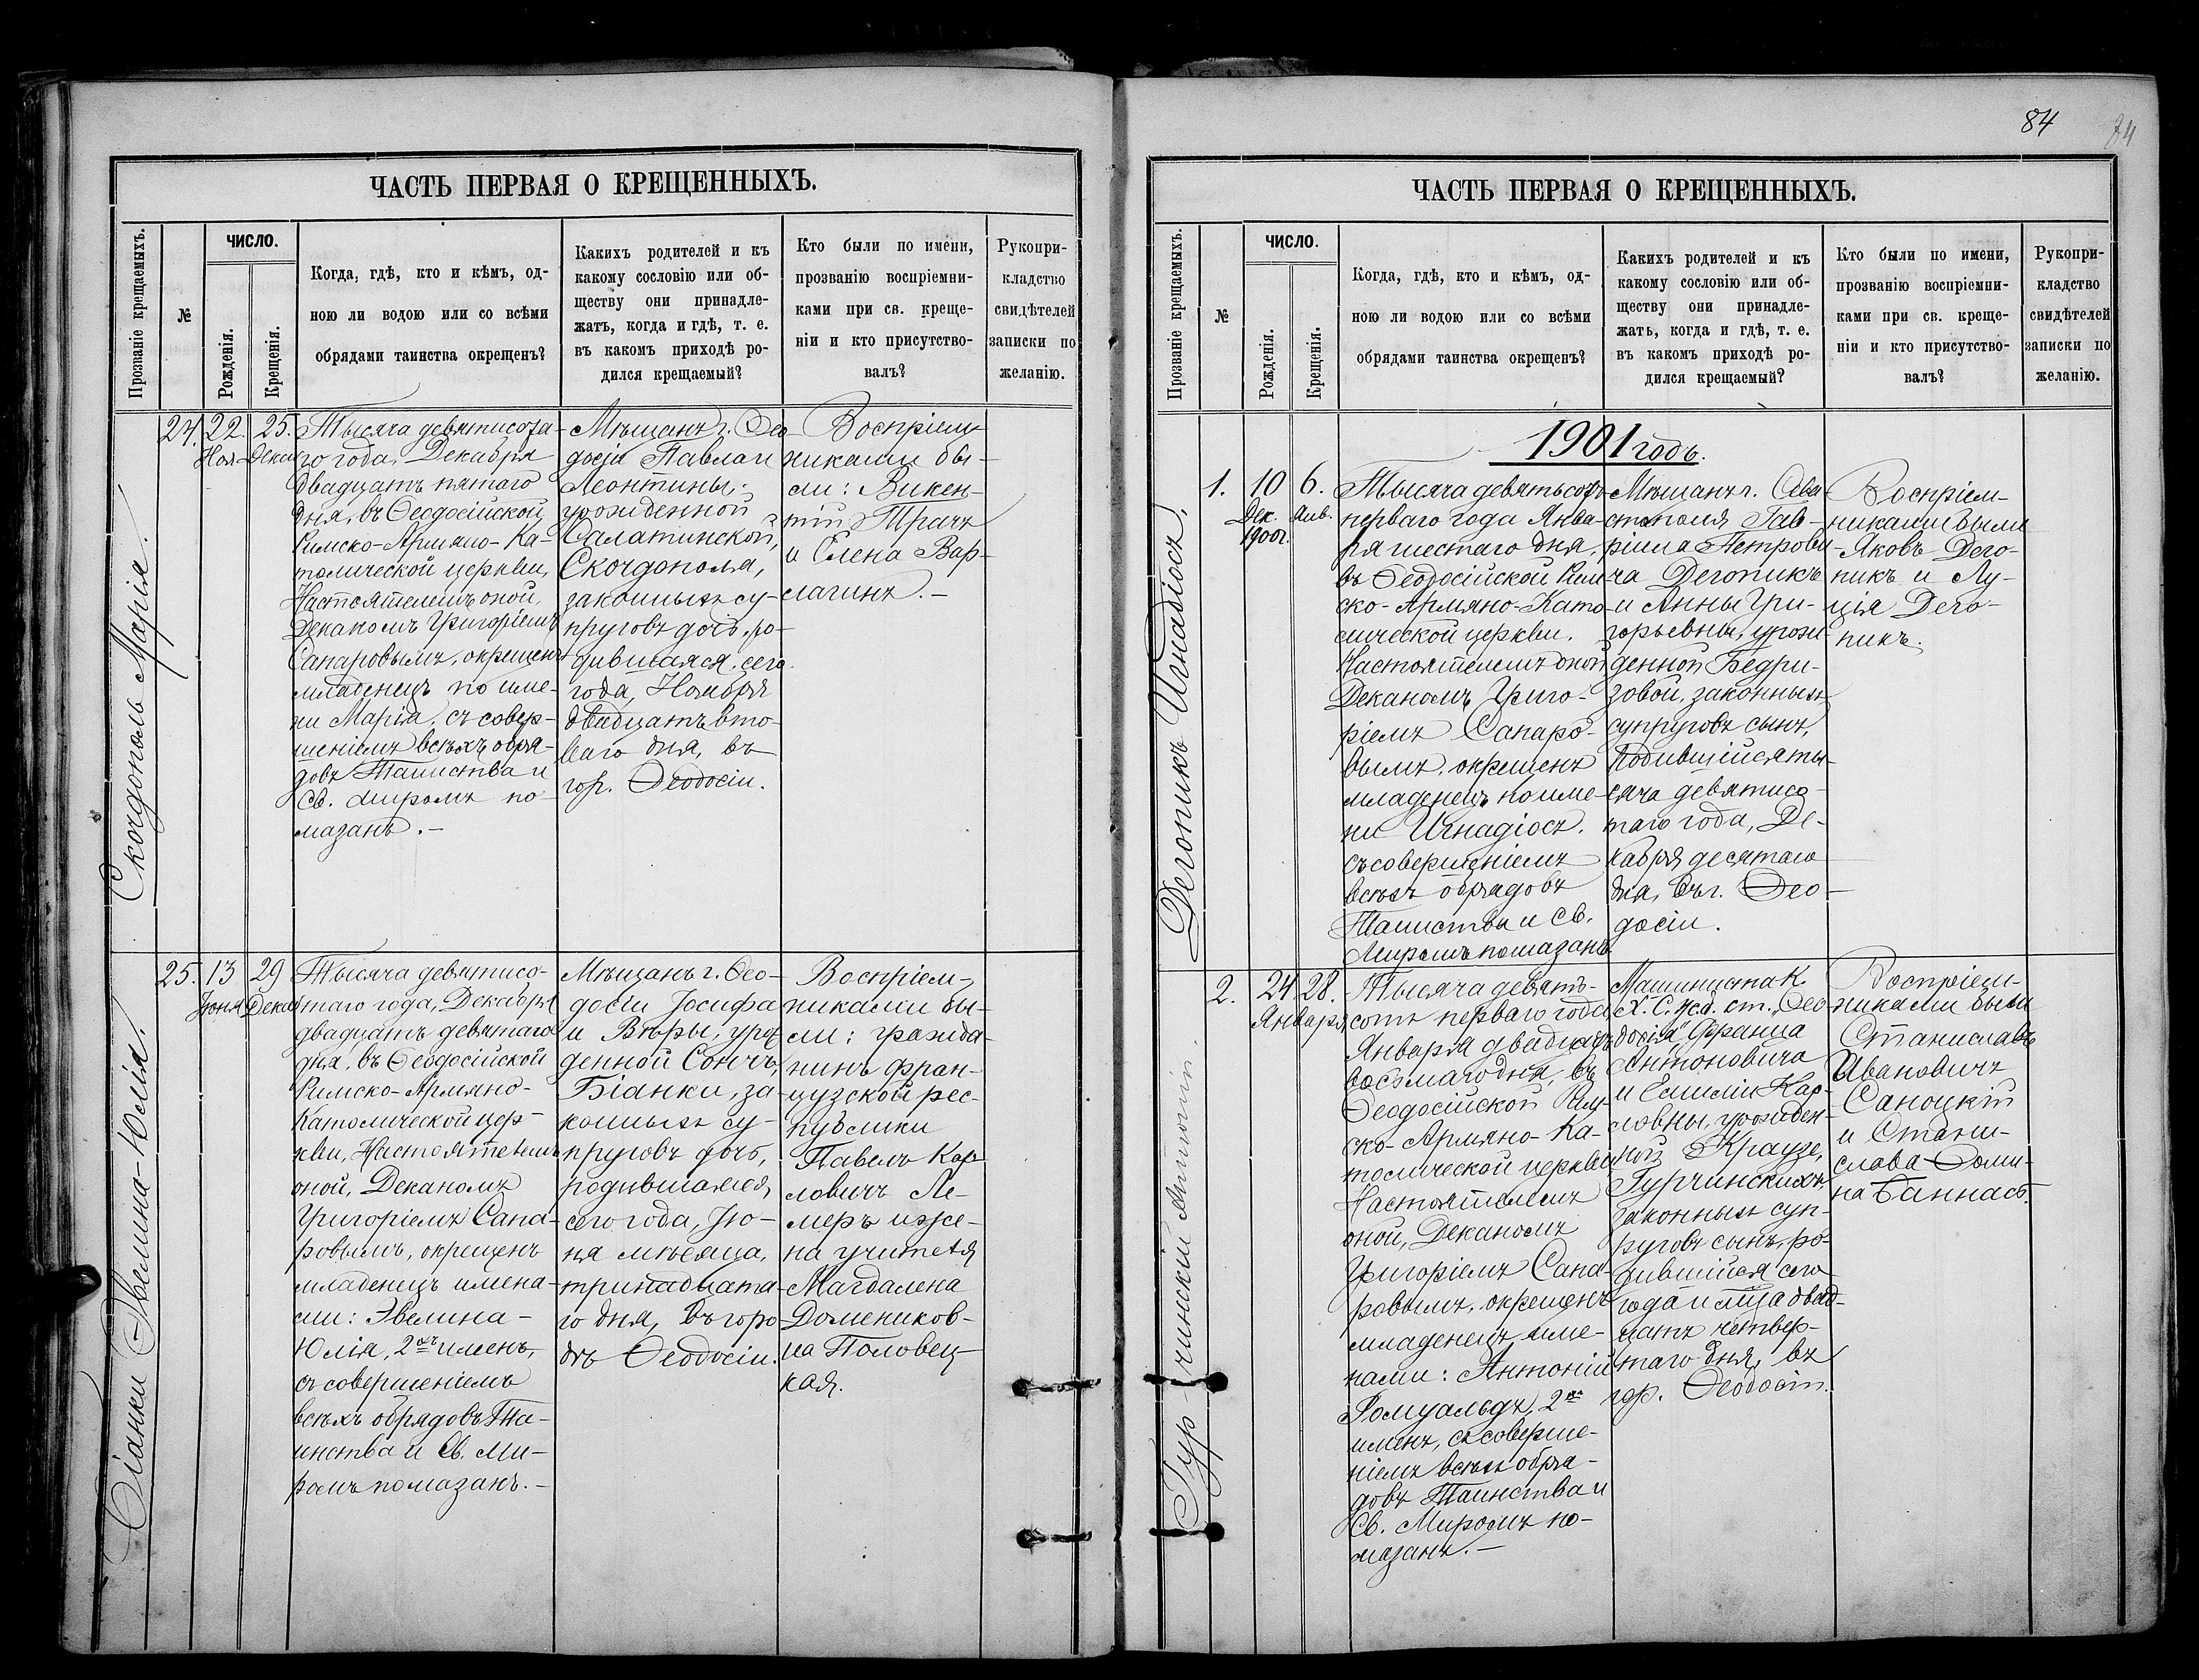 84
74
ЧАСТЬ ПЕРВАЯ О КРЕЩЕННЫХЪ.
Прозваніе крещаемыхъ.
№
ЧИСЛО.
Рожденія.
Крещенія.
Когда, гдѣ, кто и кѣмъ, од-
ною ли водою или со всѣми
обрядами таинства окрещенъ?
Какихъ родителей и къ
какому сословію или об-
ществу они принадле-
жатъ, когда и гдѣ, т. е.
въ какомъ приходѣ ро-
дился крещаемый?
Кто были по имени,
прозванію воспріемни-
ками при св. креще-
ніи и кто присутство-
валъ?
Рукопри-
кладство
свидѣтелей
записки по
желанію.
Скочдополь Марія.
24.
22.
Ноя-
25.
Декаб
Тысяча девятисота-
го года, Декабря
двадцать пятаго
дня, въ Ѳеодосійской
Римско-Армяно-Ка-
толической церкви,
Настоятелемъ оной,
Деканомъ Григоріемъ
Сапаровымъ, окрещенъ
младенецъ по име-
ни Марія, съ совер-
шеніемъ всѣхъ обря-
довъ Таинства и
Св. Миромъ по-
мазанъ.-
Мѣщанъ г. Ѳео-
досіи Павла и
Леонтины,
урожденной
Салатинской,
Скочдополя,
законныхъ су-
пруговъ дочь, ро-
дившаяся сего
года, Ноября
двадцать вто-
раго дня, въ
гор. Ѳеодосіи.
Воспріем-
никами бы-
ли: Викен-
тій Трачъ
и Елена Вар-
слагинъ.-
Біанки Эвелина-Юлія.
25.
13
Іюня
29
Декаб
Тысяча девятисо-
таго года, Декабря
двадцать девятаго
дня, въ Ѳеодосійской
Римско-Армяно-
Католической цер-
кви, Настоятелемъ
оной, Деканомъ
Григоріемъ Сапа-
ровымъ, окрещенъ
младенецъ имена-
ми: Эвелина-
Юлія, 2хъ именъ,
съ совершеніемъ
всѣхъ обрядовъ Та-
инства и Св. Ми-
ромъ помазанъ.-
Мѣщанъ г. Ѳео-
досіи Іосифа
и Вѣры, урож
денной Сончъ,
Біанки, за-
конныхъ су-
пруговъ дочь,
родившаяся
сего года, Ію-
ня мѣсяца,
тринадцата-
го дня, въ горо
дѣ Ѳеодосіи.
Воспріем-
никами бы-
ли: гражда-
нинъ фран-
цузской рес-
публики
Павелъ Кар
ловичъ Ле-
меръ и же-
на учителя
Магдалена
Домеников-
на Половец-
кая.
ЧАСТЬ ПЕРВАЯ О КРЕЩЕННЫХЪ.
Прозваніе крещаемыхъ.
№
ЧИСЛО.
Рожденія.
Крещенія.
Когда, гдѣ, кто и кѣмъ, од-
ною ли водою или со всѣми
обрядами таинства окрещенъ?
Какихъ родителей и къ
какому сословію или об-
ществу они принадле-
жатъ, когда и гдѣ, т. е.
въ какомъ приходѣ ро-
дился крещаемый?
Кто были по имени,
прозванію воспріемни-
ками при св. креще-
ніи и кто присутство-
валъ?
Рукопри-
кладство
свидѣтелей
записки по
желанію.
1901 годъ.
Дегоникъ Игнадіосъ.
1.
10
Дек.
1900г.
6.
Янв.
Тысяча девятьсотъ
перваго года Янва-
ря шестаго дня,
въ Ѳеодосійской Рим-
ско-Армяно-Като-
лической церкви,
Настоятелемъ оной
Деканомъ Григо-
ріемъ Сапаро-
вымъ, окрещенъ
младенецъ по име-
ни Игнадіосъ.
съ совершеніемъ
всѣхъ обрядовъ
Таинства и Св.
Миромъ помазанъ
Мѣщанъ г. Сева-
стополя Гав-
ріила Петрови-
ча Дегоникъ
и Анны Гри-
горьевны, урож-
денной Бедри-
зовой, законныхъ
супруговъ сынъ,
родившійся ты-
сяча девятисо-
таго года, Де-
кабря десятаго
дня, въ г. Ѳео-
досіи.
Воспріем-
никами были
Яковъ Дего-
никъ и Лу-
ція Дего-
никъ.
Гур-чинскій Антоній.
2.
24
28.
Января
Тысяча девять-
сотъ перваго года,
Января двадцать
восьмаго дня, въ
Ѳеодосійской Рим-
ско-Армяно-Ка-
толической церкви
Настоятелемъ
оной, Деканомъ
Григоріемъ Сапа-
ровымъ, окрещенъ
младенецъ име-
нами: Антоній
Ромуальдъ, 2хъ
именъ, съ соверше-
ніемъ всѣхъ обря-
довъ Таинства и
Св. Миромъ по-
мазанъ.-
Машиниста К.
Х. С. ж.д. ст. „Ѳео-
досія“ Франца
Антоновича
и Емиліи Кар-
ловны, урожден-
ной Краузе,
Гурчинскихъ
законныхъ суп-
руговъ сынъ, ро-
дившійся сего
года и м-ца двад-
цать четвер-
таго дня, въ
гор. Ѳеодосіи.
Воспріем-
никами были
Станиславъ
Ивановичъ
Саноцкій
и Стани-
слава Доми-
на Баннасъ.